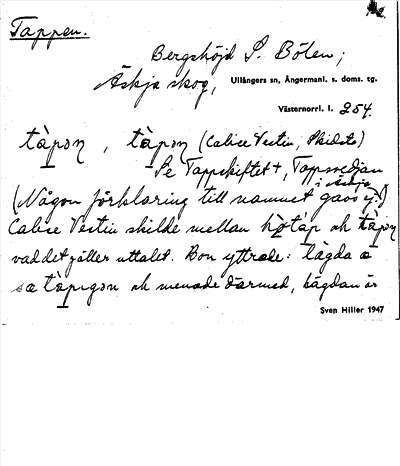 Tappen.
Bergshöjd S. Bölen;
Äskja skog, Ullångers sn, Ångermanl. s. doms. tg.
Västernorrl. l. 254.
tàpən, tàpən (Calice Vestin, Skidsta)
Se Tappskiftet +, Tappmedjan
i Äskja
(Någon förklaring till namnet gavs ej.)
Calice Vestin skilde mellan hòtáp ok tàpən
vad det gäller uttalet. Hon yttrade: lägda
sa tàpıgən ok menade därmed, lägdan är
Sven Hiller 1947